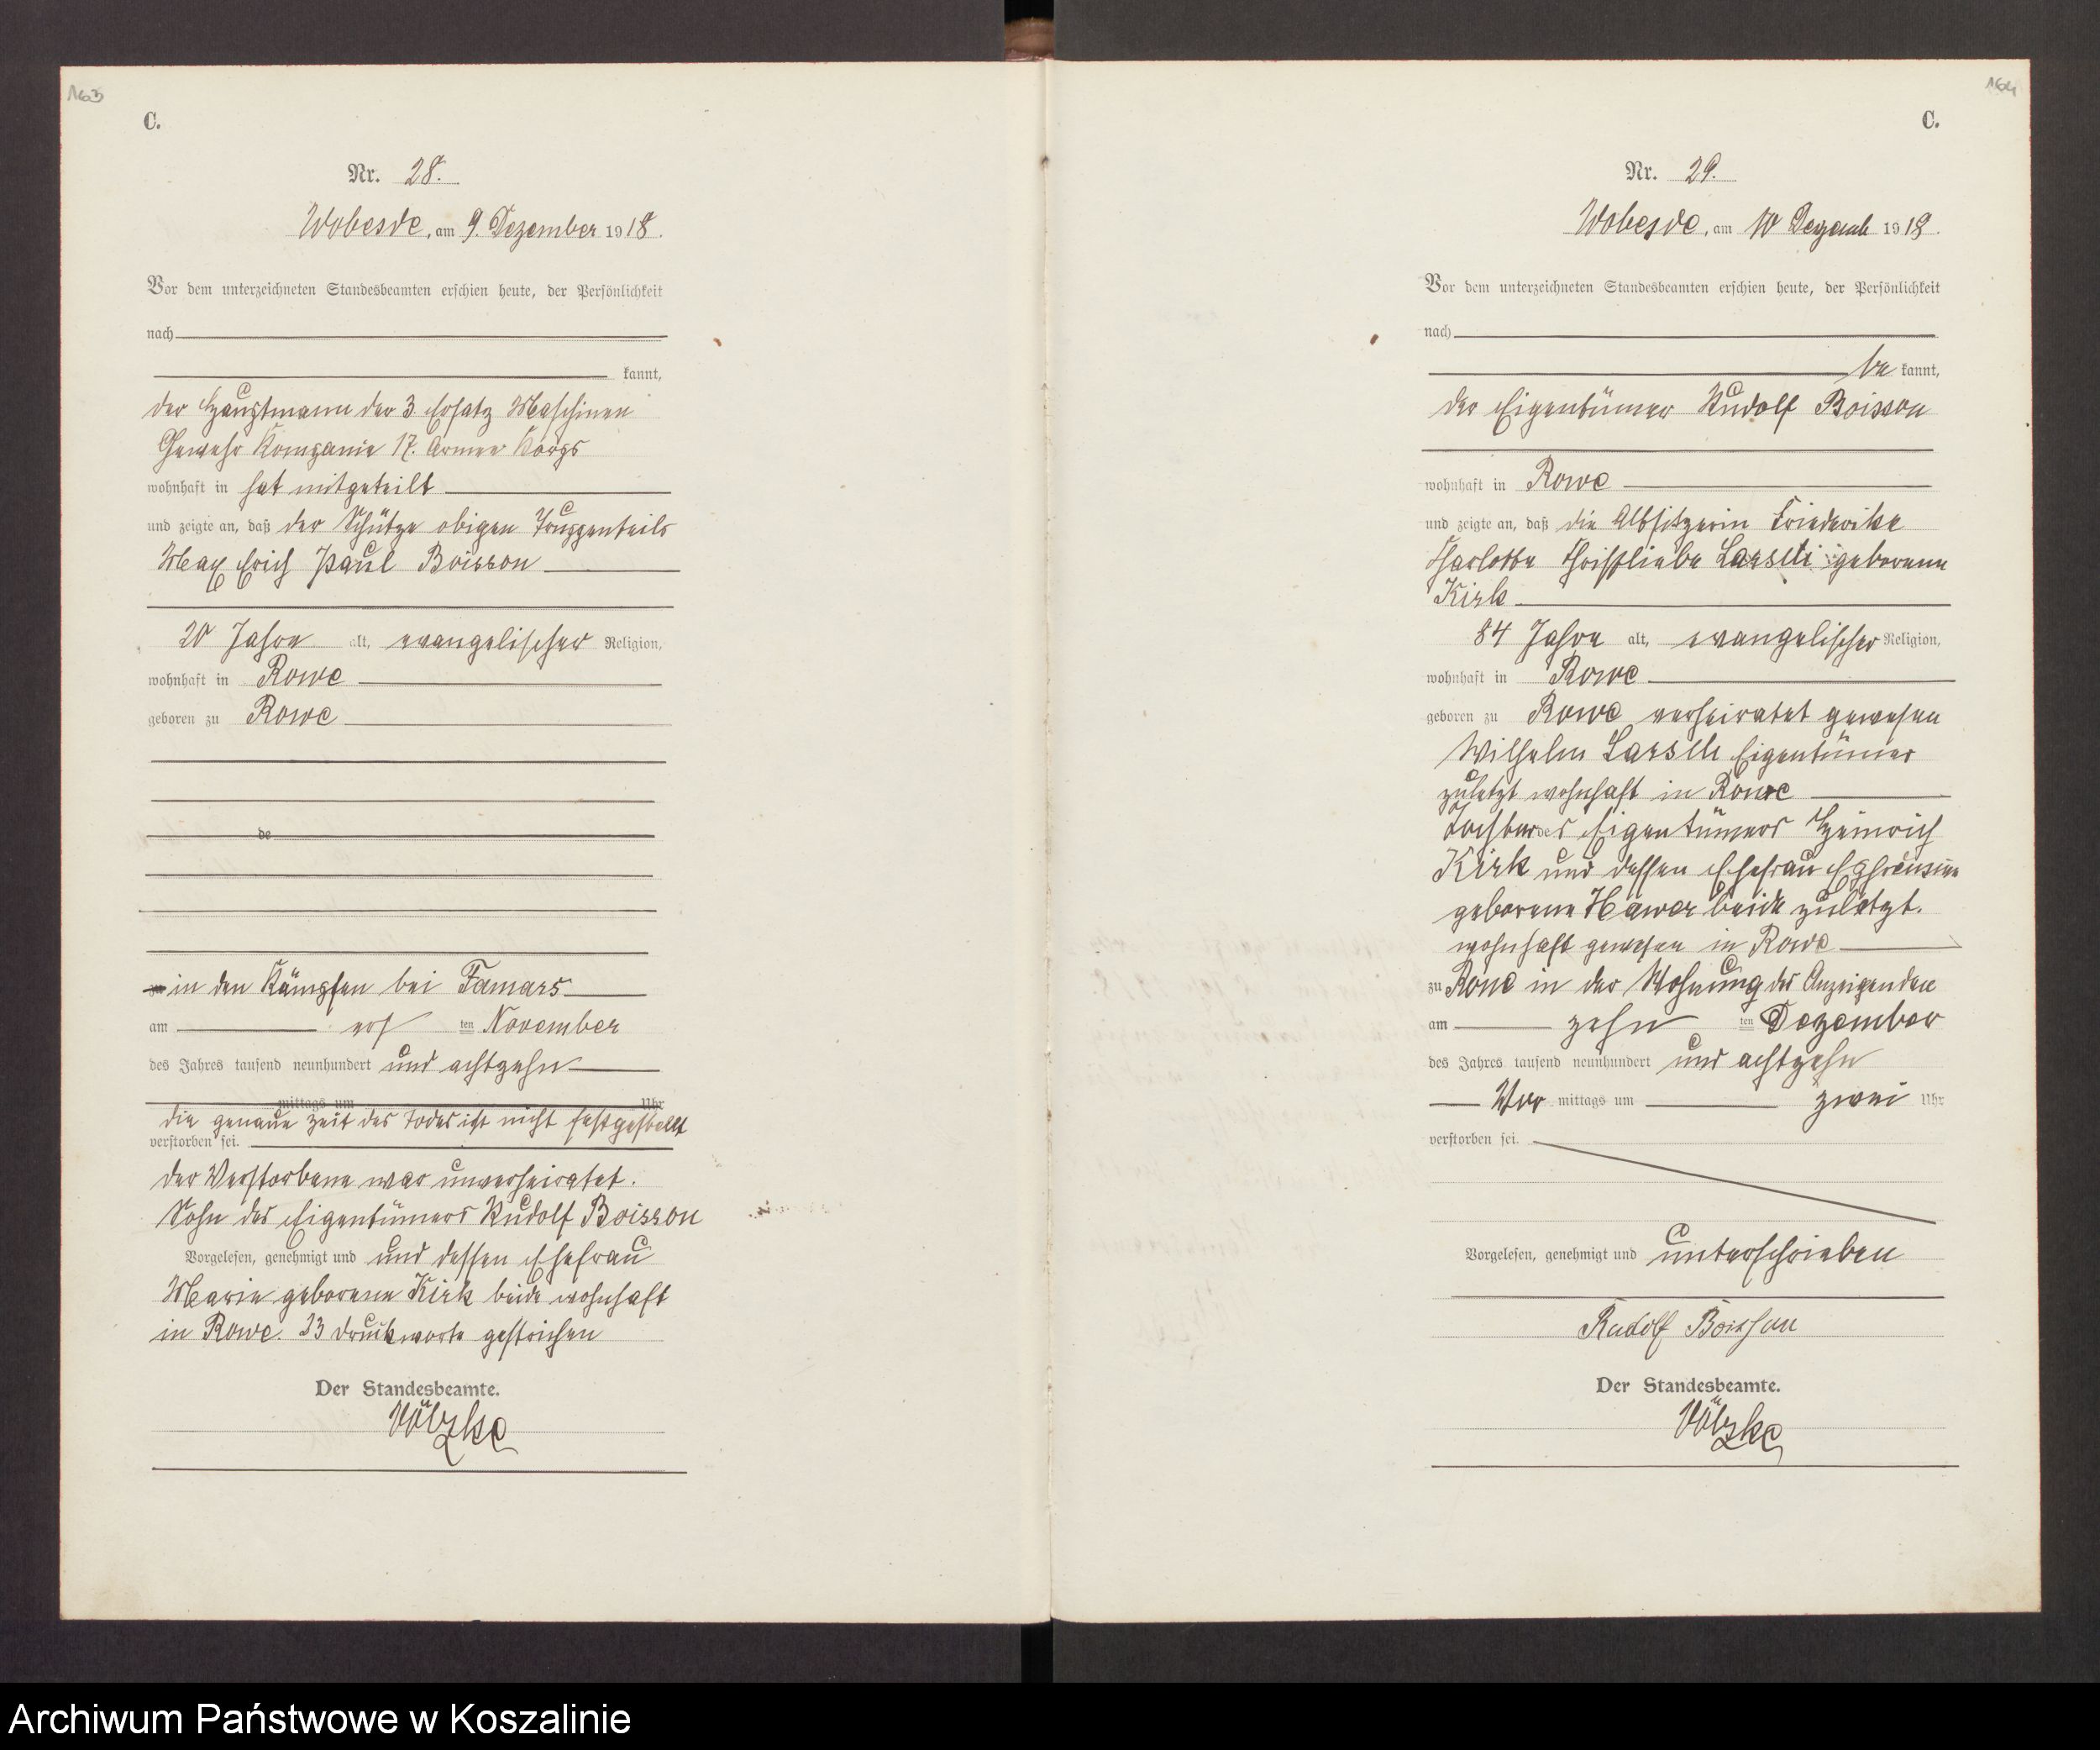 163
C.
Nr. 28.
Wobesde, am 9. Dezember 1918.
Vor dem unterzeichneten Standesbeamten erschien heute, der Persönlichkeit
nach
kannt,
der Hauptmann der 3. Ersatz Maschinen
Gewehr Kompanie 17. Armee Korps
wohnhaft in hat mitgeteilt
und zeigte an, daß der Schütze obigen Truppenteils
Max Erich Paul Boisson
20 Jahre alt, evangelischer Religion,
wohnhaft in Rowe
geboren zu Rowe
de
in den Kämpfen bei Famars
am ten November
des Jahres tausend neunhundert und achtzehn
mittags um Uhr
die genaue Zeit des Todes ist nicht festgestellt
verstorben sei.
der Verstorbene war unverheiratet.
Sohn des Eigentümers Rudolf Boisson
Vorgelesen, genehmigt und und dessen Ehefrau
Marie geborene Kirk beide wohnhaft
in Rowe. 23 Druckworte gestrichen
Der Standesbeamte.
Völzke
164
C.
Nr. 29.
Wobesde, am 10 Dezemb 1918.
Vor dem unterzeichneten Standesbeamten erschien heute, der Persönlichkeit
nach
be kannt,
der Eigentümer Rudolf Boisson
wohnhaft in Rowe
und zeigte an, daß die Altsitzerin Friederike
Charlotte Christliebe geborene
Kirk
84 Jahre alt, evangelischer Religion,
wohnhaft in Rowe
geboren zu Rowe verheiratet gewesen
Wilhelm Eigentümer
zuletzt wohnhaft in Rowe
Tochter des Eigentümers Heinrich
Kirk und dessen Ehefrau
geborene beide zuletzt.
wohnhaft gewesen in Rowe
zu Rowe in der Wohnung des Anzeigenden
am zehn ten Dezember
des Jahres tausend neunhundert und achtzehn
Vor mittags um zwei Uhr
verstorben sei.
Vorgelesen, genehmigt und unterschrieben
Rudolf Boisson
Der Standesbeamte.
Völzke
Archiwum Państwowe w Koszalinie